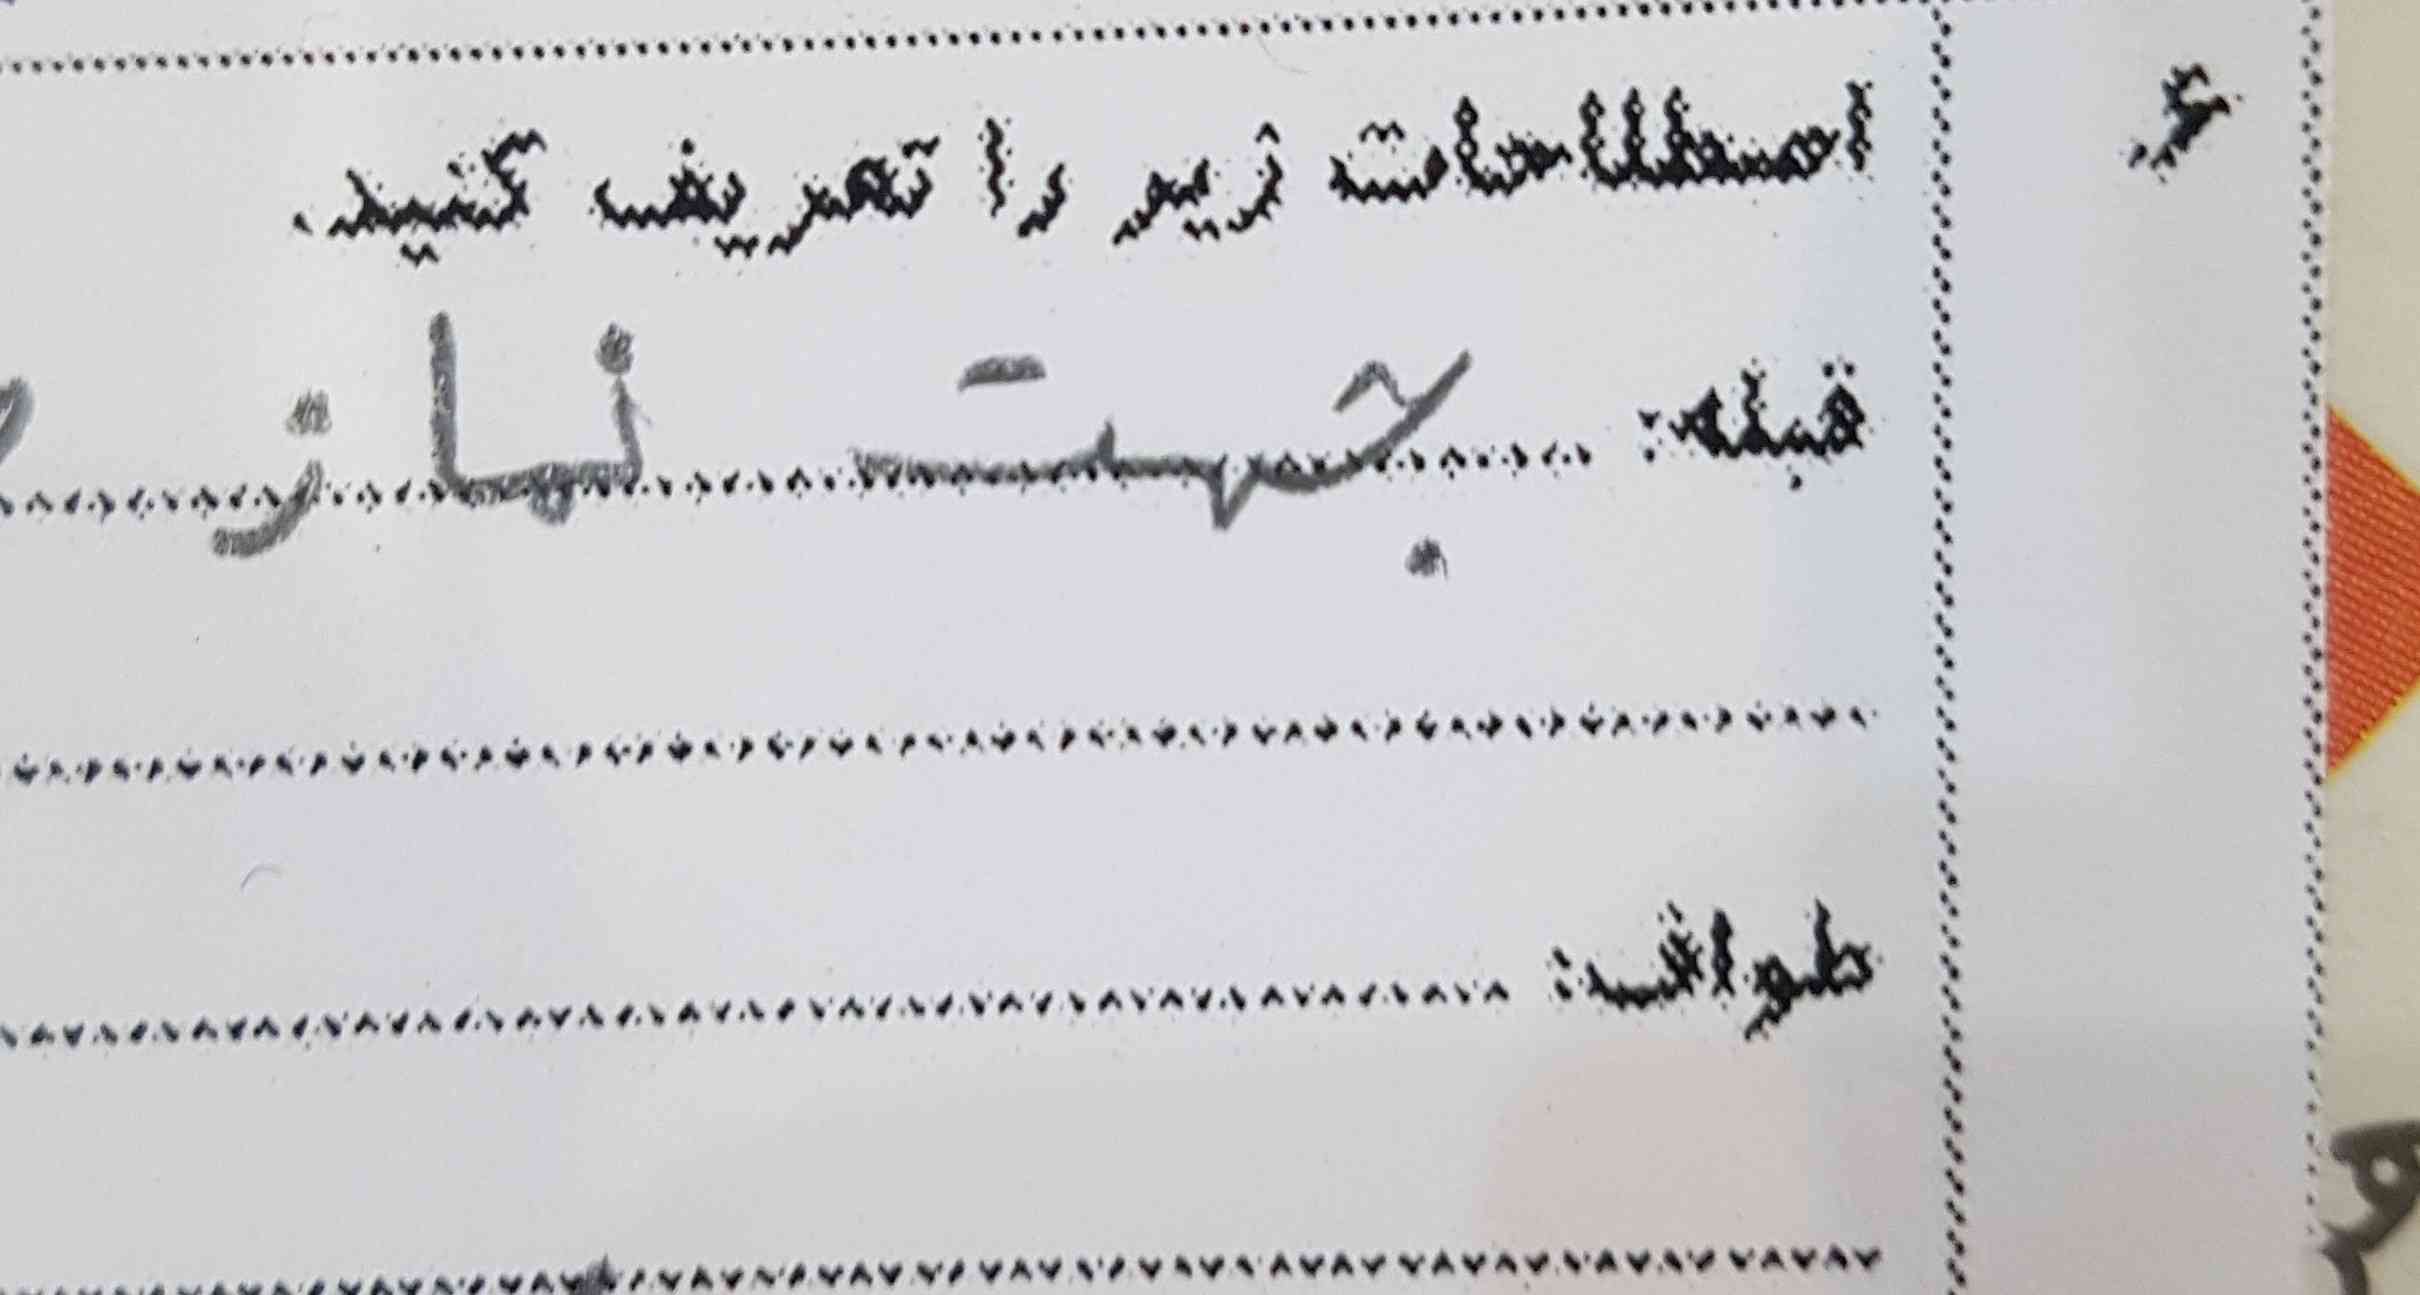 ۶
اصطلاحات زیر را تعریف کنید.
قبله: جهت نماز
طواف: